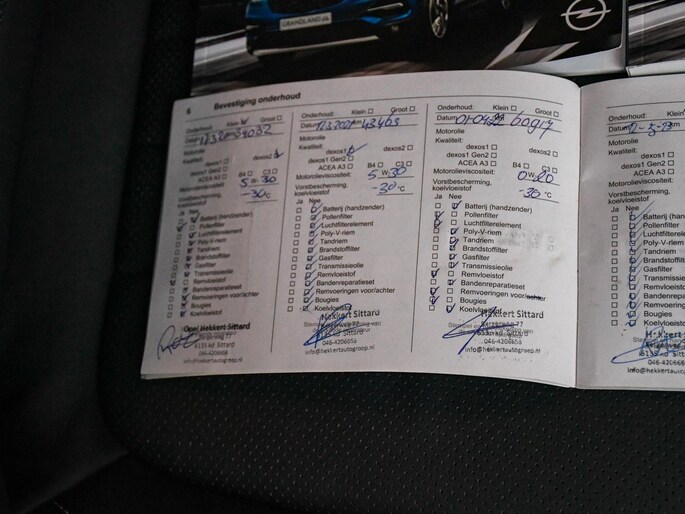 GRANDLAND
6 Bevestiging onderhoud
Onderhoud: Klein Groot
Datum
Motorolie
Kwaliteit:
dexos1 dexos2
dexos1 Gen2
ACEA A3 B4 C3
Motorolieviscositeit: 5 W 30
Vorstbescherming,
koelvloeistof -30 °C
Ja Nee
Batterij (handzender)
Pollenfilter
Luchtfilterelement
Poly-V-riem
Tandriem
Brandstoffilter
Gasfilter
Transmissieolie
Remvloeistof
Bandenreparatieset
Remvoeringen voor/achter
Bougies
Koelvloeistof
Opel Hekkert Sittard
6135 ad Sittard
046-4206666
info@hekkertautogroep.nl
Onderhoud: Klein Groot
Datum
Motorolie
Kwaliteit:
dexos1 dexos2
dexos1 Gen2
ACEA A3 B4 C3
Motorolieviscositeit: 5 W 30
Vorstbescherming,
koelvloeistof -30 °C
Ja Nee
Batterij (handzender)
Pollenfilter
Luchtfilterelement
Poly-V-riem
Tandriem
Brandstoffilter
Gasfilter
Transmissieolie
Remvloeistof
Bandenreparatieset
Remvoeringen voor/achter
Bougies
Koelvloeistof
Hekkert Sittard
6135 ad Sittard
046-4206666
info@hekkertautogroep.nl
Onderhoud: Klein Groot
Datum
Motorolie
Kwaliteit:
dexos1 dexos2
dexos1 Gen2
ACEA A3 B4 C3
Motorolieviscositeit: 0 W 20
Vorstbescherming,
koelvloeistof -30 °C
Ja Nee
Batterij (handzender)
Pollenfilter
Luchtfilterelement
Poly-V-riem
Tandriem
Brandstoffilter
Gasfilter
Transmissieolie
Remvloeistof
Bandenreparatieset
Remvoeringen voor/achter
Bougies
Koelvloeistof
Hekkert Sittard
6135 ad Sittard
046-4206666
info@hekkertautogroep.nl
Onderhoud: Klein
Datum km
Motorolie
Kwaliteit:
dexos1
dexos1 Gen2
ACEA A3
Motorolieviscositeit:
Vorstbescherming,
koelvloeistof
Ja Nee
Batterij (handzender)
Pollenfilter
Luchtfilterelement
Poly-V-riem
Tandriem
Brandstoffilter
Gasfilter
Transmissieolie
Remvloeistof
Bandenreparatieset
Remvoeringen
Bougies
Koelvloeistof
Hekkert Sittard
6135 ad Sittard
046-4206666